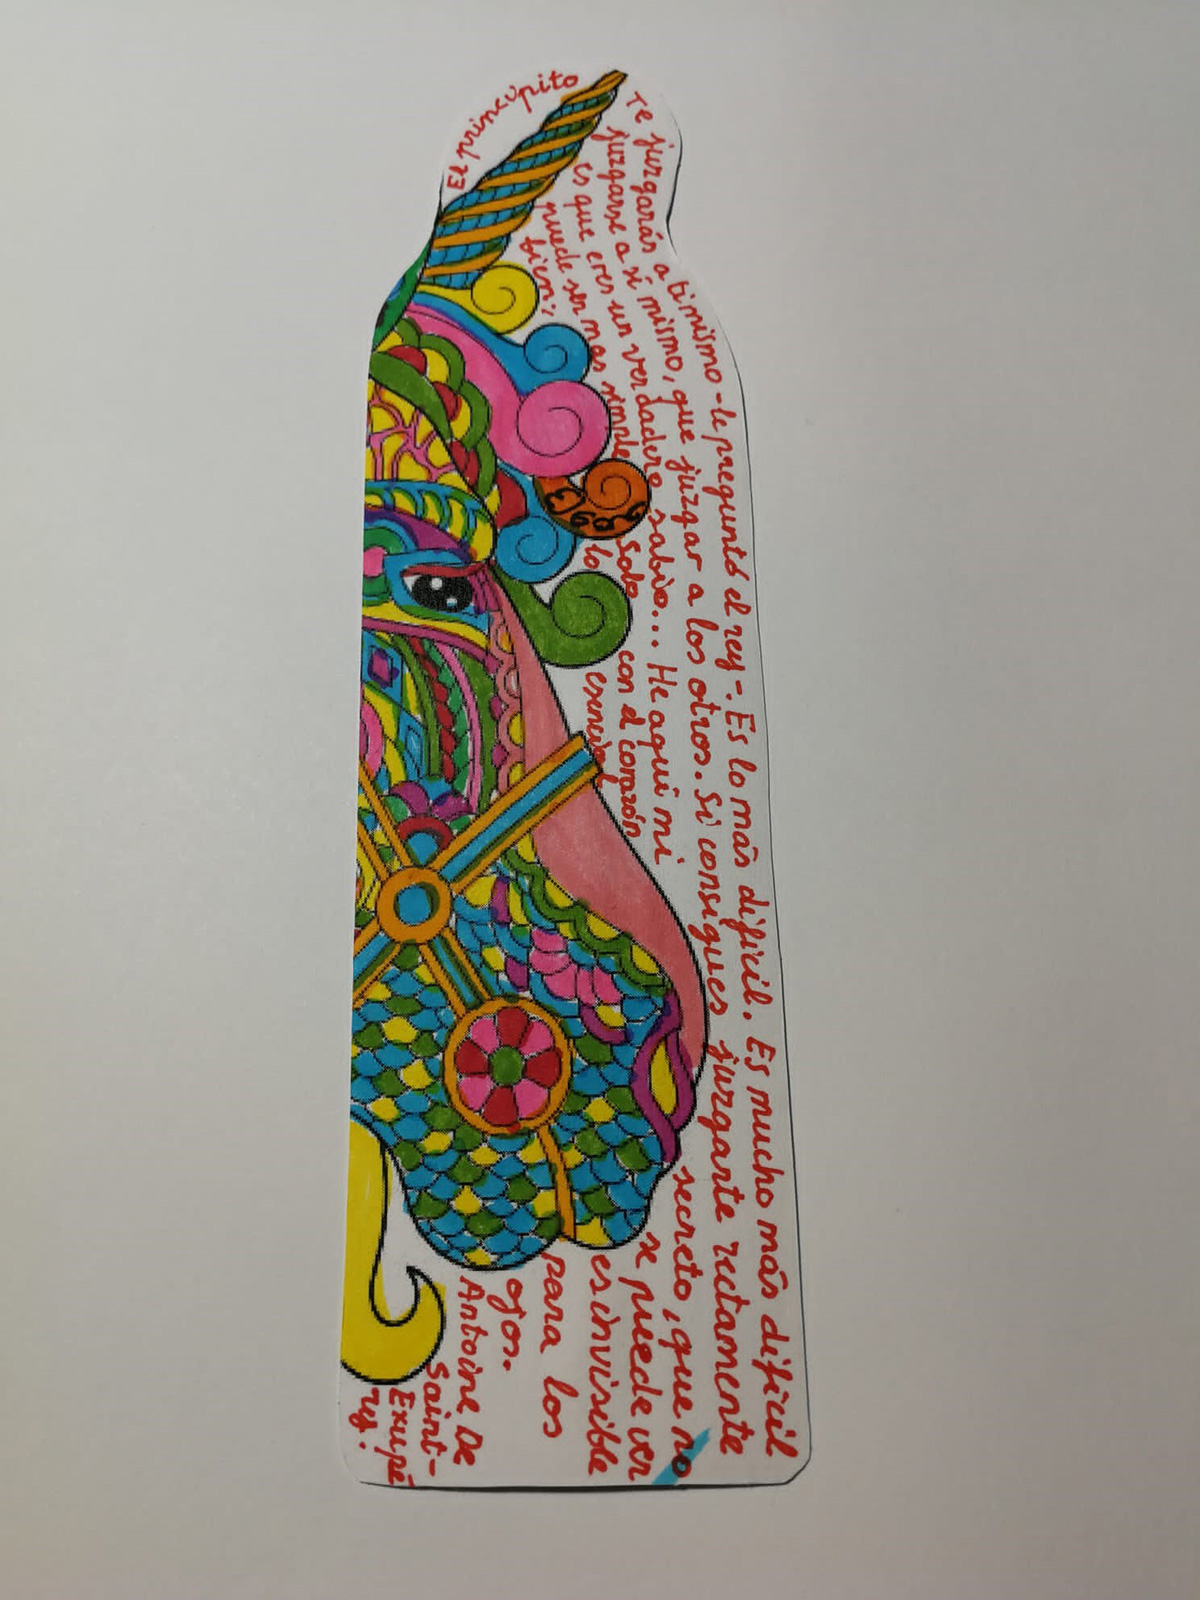 El principito
Te juzgarás a ti mismo -le preguntó el rey-. Es lo más dificil. Es mucho más dificil
juzgarse a sí mismo, que juzgar a los otros. Si consigues juzgarte rectamente
es que eres un verdadero sabio... He aqui mi secreto, que no
puede ser mas simple: Solo con el corazón se puede ver
bien; lo esencial es invisible
para los
ojos.
Antoine De
Saint-
Exupé
ry.